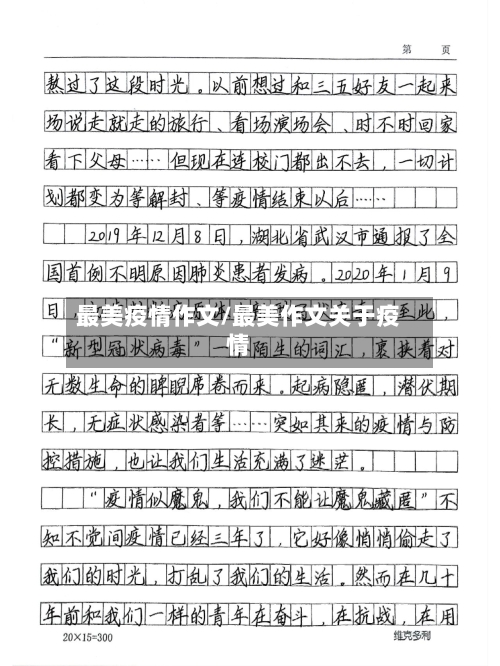 第 页
熬过了这段时光。以前想过和三五好友一起来
场说走就走的旅行、看场演场会、时不时回家
看下父母……但现在连校门都出不去，一切计
划都变为等解封、等疫情结束以后……
2019年12月8日，湖北省武汉市通报了全
国首例不明原因肺炎患者发病。2020年1月9
日，至此，
最美疫情作文/最美作文关于疫
情
“新型冠状病毒”一陌生的词汇，裹挟着对
无数生命的睥睨席卷而来。起病隐匿，潜伏期
长，无症状感染者等……突如其来的疫情与防
控措施，也让我们生活充满了迷茫。
“疫情似魔鬼，我们不能让魔鬼藏匿”不
知不觉间疫情已经三年了，它好像悄悄偷走了
我们的时光，打乱了我们的生活。然而在几十
年前和我们一样的青年在奋斗，在抗战，在用
20×15=300 维克多利